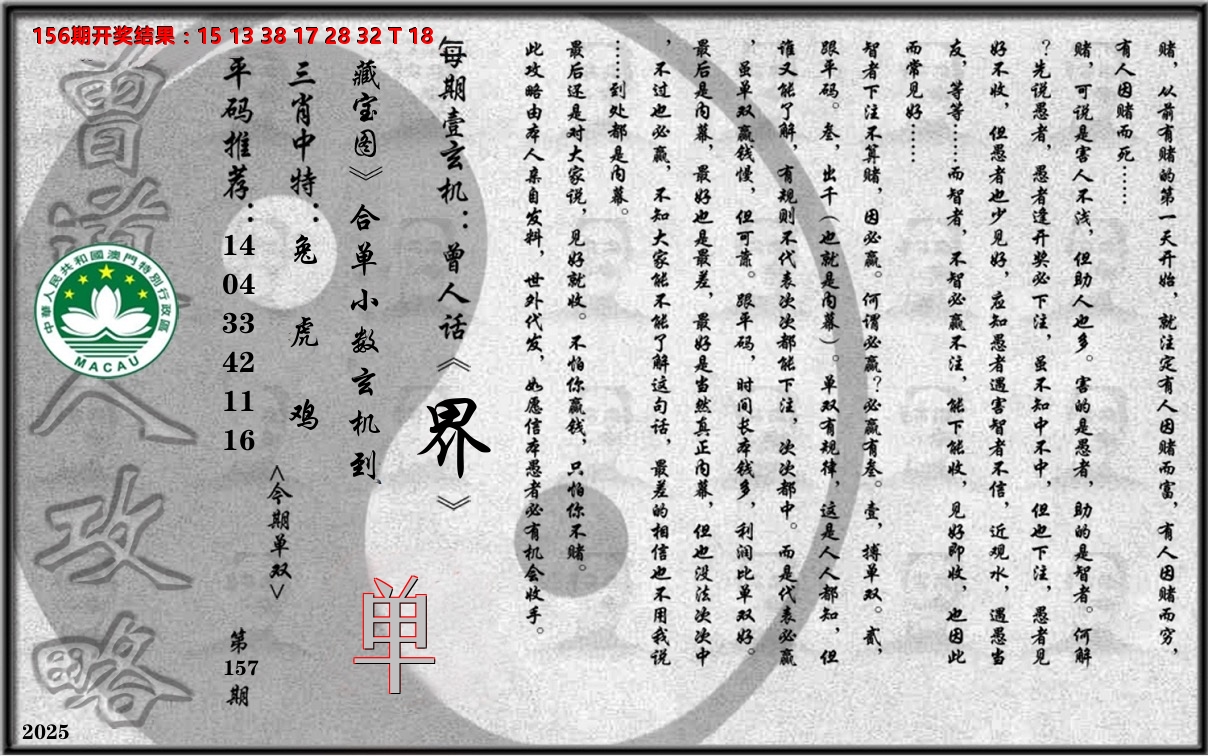 156期开奖结果：15 13 38 17 28 32 T 18
赌，从前有赌的第一天开始，就注定有人因赌而富，有人因赌而穷，
有人因赌而死……
赌，可说是害人不浅，但助人也多。害的是愚者，助的是智者。何解
？先说愚者，愚者逢开奖必下注，虽不知中不中，但也下注，愚者见
好不收，但愚者也少见好，应知愚者遇害智者不信，近观水，遇愚当
友，等等……而智者，不智必赢不注，能下能收，见好即收，也因此
而常见好……
智者下注不算赌，因必赢。何谓必赢？必赢有叁。壹，搏单双。贰，
跟平码。叁，出千（也就是内幕）。单双有规律，这是人人都知，但
谁又能了解，有规则不代表次次都能下注，次次都中。而是代表必赢
，虽单双赢钱慢，但可靠。跟平码，时间长本钱多，利润比单双好。
最后是内幕，最好也是最差，最好是当然真正内幕，但也没法次次中
，不过也必赢，不知大家能不能了解这句话，最差的相信也不用我说
……到处都是内幕。
最后还是对大家说，见好就收。不怕你赢钱，只怕你不赌。
此攻略由本人亲自发料，世外代发，如愿信本愚者必有机会收手。
每期壹玄机：曾人话《界》
藏宝图》合单小数玄机到
单
三肖中特：兔 虎 鸡
<今期单双>
平码推荐：14 04 33 42 11 16
第157期
曾道人攻略
中華人民共和國澳門特別行政區
MACAU
2025